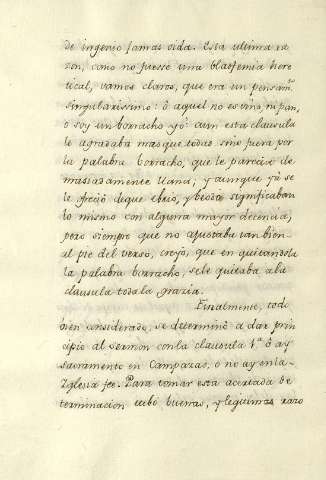 de ingenio jamas oida. Esta ultima ra
zon, como no fuesse una blasfemia here
tical, vamos claros, que era un pensam.to
singularissimo: ò aquel no es vino, ni pan,
o soy un borracho yò: aun esta clausula
le agradaba mas que todas sino fuera por
la palabra borracho, que le pareciò de
masiadamente llana, y aunque yà se
le ofrejiò de que ebrio, y beodo significaban
lo mismo con alguna mayor decencia,
pero siempre que no ajustaba tan bien
al pie del verso, creyò, que en quitandola
la palabra borracho, se le quitaba a la
clausula toda la grazia.
Finalmente, todo
bien considerado, se determinò a dar prin
cipio al sermon con la clausula 1.a ò ay
sacramento en Campazas, o no ay en la
Iglesia fee. Para tomar esta acertada de
terminacion tubo buenas, y legitimas razo